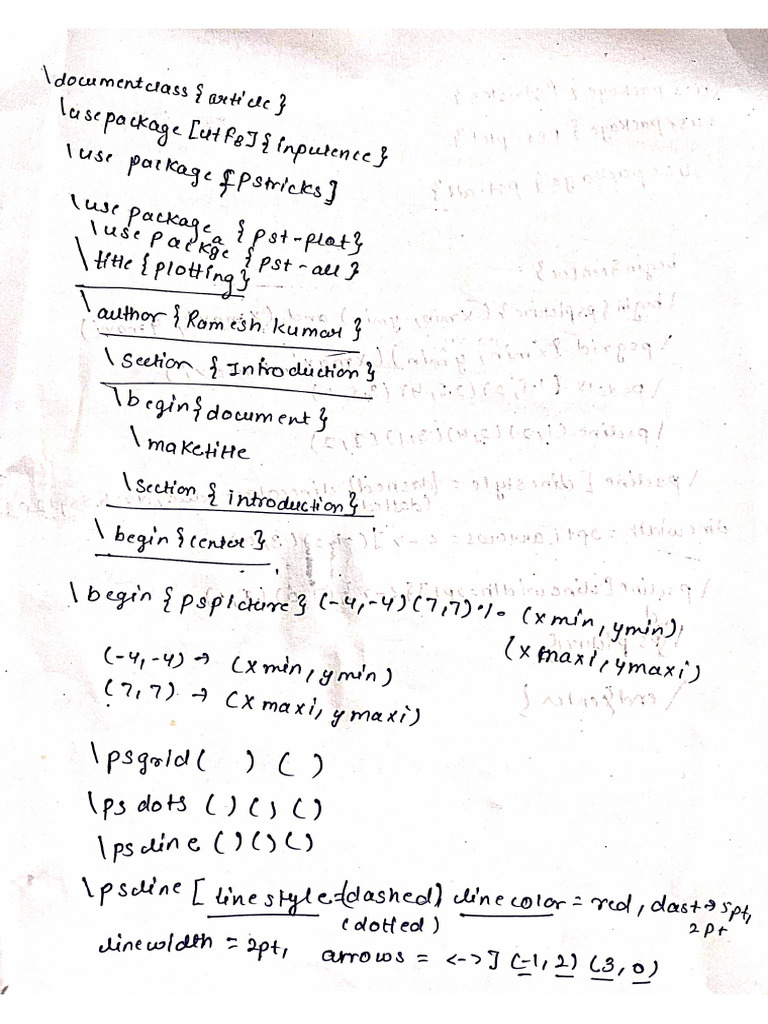 \documentclass{article}
\usepackage[utf8]{inputence}
\use package{pstricks]
\use package {pst-plot}
\use packagea {pst-all}
\title {plotting}
\author {Ramesh kumar}
\section {Introduction}
\begin{document}
\maketitle
\section {introduction}
\begin {center}
\begin {pspicture} (-4,-4)(7,7)% (xmin, ymin)
(xmaxi, ymaxi)
(-4,-4) → (xmin, ymin)
(7,7) → (xmaxi, ymaxi)
\psgrid( ) ( )
\ps dots ()()()
\psline ()()()
\psline [line style={dashed} line color = red, dast→5pt,
(dotted) 2pt
linewidth = 2pt, arrows = <->] (-1,2) (3,0)